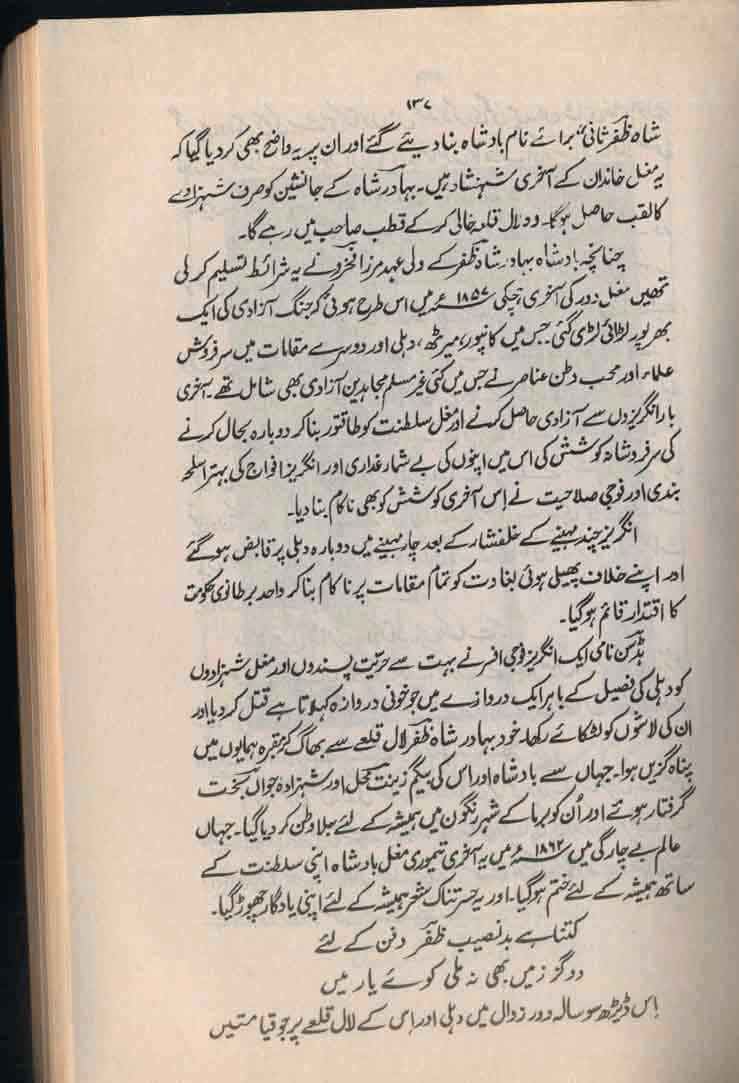 ۱۳۷
شاہ ظفر ثانی" برائے نام بادشاہ بنا دیئے گئے اور ان پر یہ واضح بھی کردیا گیا کہ
یہ مغل خاندان کے آخری شہنشاہ ہیں۔ بہادر شاہ کے جانشین کو صرف شہزادے
کا لقب حاصل ہوگا۔ وہ لال قلعہ خالی کرکے قطب صاحب میں رہے گا۔
چنانچہ بادشاہ بہادر شاہ ظفر کے ولی عہد مرزا فخرو نے یہ شرائط تسلیم کر لی
تھیں مغل دور کی آخری ہچکی ۱۸۵۷ء میں اس طرح ہوئی کہ جنگ آزادی کی ایک
بھرپور لڑائی لڑی گئی۔ جس میں کانپور، میرٹھ، دہلی اور دوسرے مقامات میں سرفروش
علماء اور محب وطن عناصر نے جس میں کئی غیر مسلم مجاہدین آزادی بھی شامل تھے۔ آخری
بار انگریزوں سے آزادی حاصل کرنے اور مغل سلطنت کو طاقتور بنا کر دوبارہ بحال کرنے
کی سرفروشانہ کوشش کی اس میں اپنوں کی بے شمار غداری اور انگریز افواج کی بہتر اسلحہ
بندی اور فوجی صلاحیت نے اِس آخری کوشش کو بھی ناکام بنا دیا۔
انگریز چند مہینے کے خلفشار کے بعد چار مہینے میں دوبارہ دہلی پر قابض ہو گئے
اور اپنے خلاف پھیلی ہوئی بغاوت کو تمام مقامات پر ناکام بنا کر واحد برطانوی حکومت
کا اقتدار قائم ہوگیا۔
ہڈسن نامی ایک انگریز فوجی افسر نے بہت سے حریّت پسندوں اور مغل شہزادوں
کو دہلی کی فصیل کے باہر ایک دروازے میں جو خونی دروازہ کہلاتا ہے قتل کردیا اور
ان کی لاشوں کو لٹکائے رکھا۔ خود بہادر شاہ ظفر لال قلعے سے بھاگ کر مقبرہ ہمایوں میں
پناہ گزیں ہوا۔ جہاں سے بادشاہ اور اس کی بیگم زینت محل اور شہزادہ جواں بخت
گرفتار ہوئے اور اُن کو برما کے شہر رنگون میں ہمیشہ کے لئے جلاوطن کردیا گیا۔ جہاں
عالم بے چارگی میں ۱۸۶۲ء میں یہ آخری تیموری مغل بادشاہ اپنی سلطنت کے
ساتھ ہمیشہ کے لئے ختم ہوگیا۔ اور یہ حسرتناک شعر ہمیشہ کے لئے اپنی یادگار چھوڑ گیا۔
کتنا ہے بدنصیب ظفر دفن کے لئے
دو گز زمیں بھی نہ ملی کوئے یار میں
اِس ڈیڑھ سو سالہ دورِ زوال میں دہلی اور اِس کے لال قلعے پر جو قیامتیں